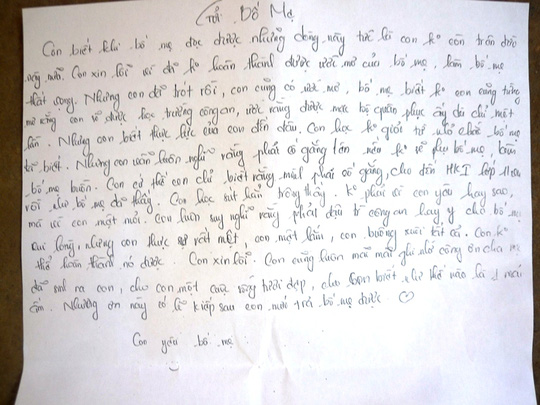 Gửi Bố Mẹ
Con biết khi bố mẹ đọc được những dòng này tức là con ko còn trên đời
này nữa. Con xin lỗi vì đã ko hoàn thành được ước mơ của bố mẹ, làm bố mẹ
thất vọng. Nhưng con đã trót rồi, con cũng có ước mơ, bố mẹ biết ko con cũng từng
mơ rằng con sẽ được học trường công an, ước rằng được mặc bộ quân phục ấy dù chỉ một
lần. Nhưng con biết thực lực của con đến đâu. Con học ko giỏi từ nhỏ chắc bố mẹ
đã biết. Nhưng con luôn luôn nghĩ rằng phải cố gắng lên nếu ko sẽ phụ bố mẹ, làm
bố mẹ buồn. Con cứ thế con chỉ biết rằng mình phải cố gắng, cho đến HKI lớp
rồi như bố mẹ đã thấy. Con học sút hẳn trông thấy. ko phải vì con yêu hay sao
mà vì con mệt mỏi. Con luôn suy nghĩ rằng phải đậu trường công an hay y cho bố mẹ
vui lòng, nhưng con thực sự rất mệt, con mệt lắm, con buông xuôi tất cả. Con ko
thể hoàn thành nó được. Con xin lỗi. Con cũng luôn mãi mãi ghi nhớ công ơn cha mẹ
đã sinh ra con, cho con một cuộc sống tươi đẹp, cho con biết như thế nào là 1 mái
ấm. Nhưng ơn này có lẽ kiếp sau con mới trả bố mẹ được. ♡
Con yêu bố mẹ.